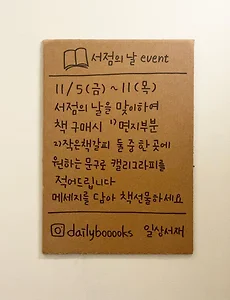 서점의 날 event
11/5(금) ~ 11(목)
서점의 날을 맞이하여
책 구매시 1)면지부분
2)작은책갈피 둘 중 한 곳에
원하는 문구로 캘리그라피를
적어드립니다
메세지를 담아 책선물하세요
dailybooooks 일상서재